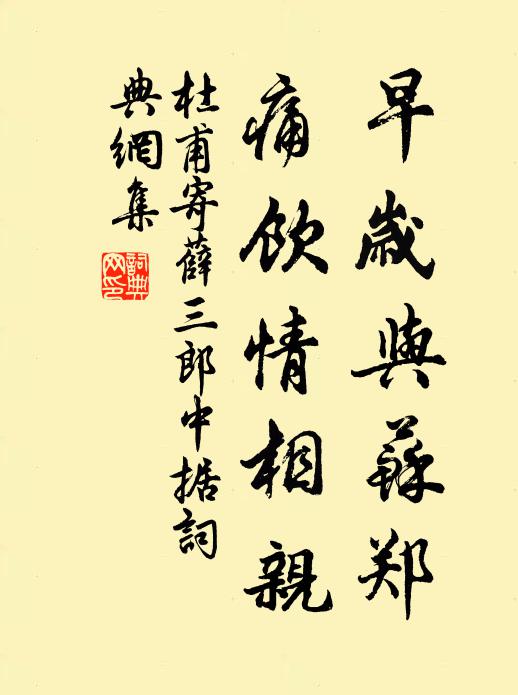 早歲與蘇郑
痛飲情相親
杜甫寄薛三郎中据詞
典網集
詞典网印